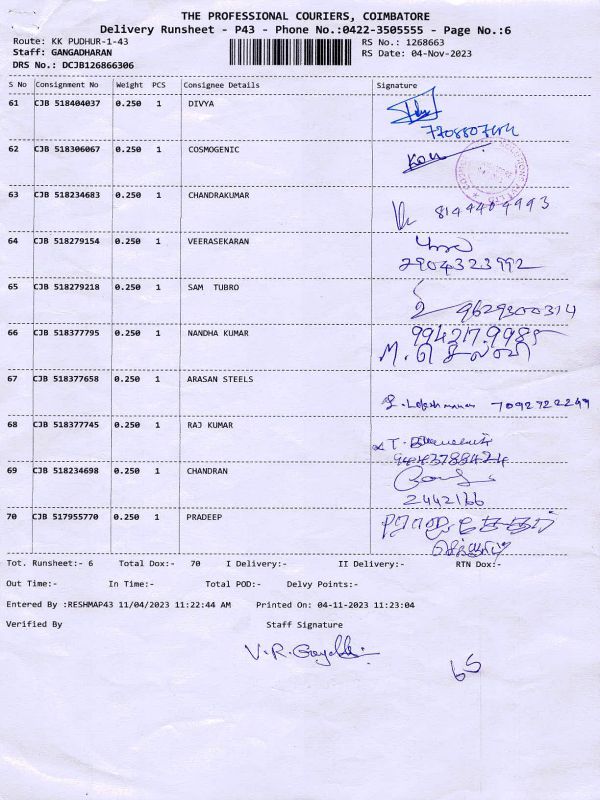 THE PROFESSIONAL COURIERS, COIMBATORE
Delivery Runsheet - P43 - Phone No.:0422-3505555 - Page No.:6
Route: KK PUDHUR-1-43 RS No.: 1268663
Staff: GANGADHARAN RS Date: 04-Nov-2023
DRS No.: DCJB126866306
S No Consignment No Weight PCS Consignee Details Signature
61 CJB 518404037 0.250 1 DIVYA
62 CJB 518306067 0.250 1 COSMOGENIC
63 CJB 518234683 0.250 1 CHANDRAKUMAR
8144404993
64 CJB 518279154 0.250 1 VEERASEKARAN
2904323992
65 CJB 518279218 0.250 1 SAM TUBRO
9629300314
66 CJB 518377795 0.250 1 NANDHA KUMAR
M. செல்வி
67 CJB 518377658 0.250 1 ARASAN STEELS
7092722249
68 CJB 518377745 0.250 1 RAJ KUMAR
69 CJB 518234698 0.250 1 CHANDRAN
2442166
70 CJB 517955770 0.250 1 PRADEEP
Tot. Runsheet:- 6 Total Dox:- 70 I Delivery:- II Delivery:- RTN Dox:-
Out Time:- In Time:- Total POD:- Delvy Points:-
Entered By :RESHMAP43 11/04/2023 11:22:44 AM Printed On: 04-11-2023 11:23:04
Verified By Staff Signature
65